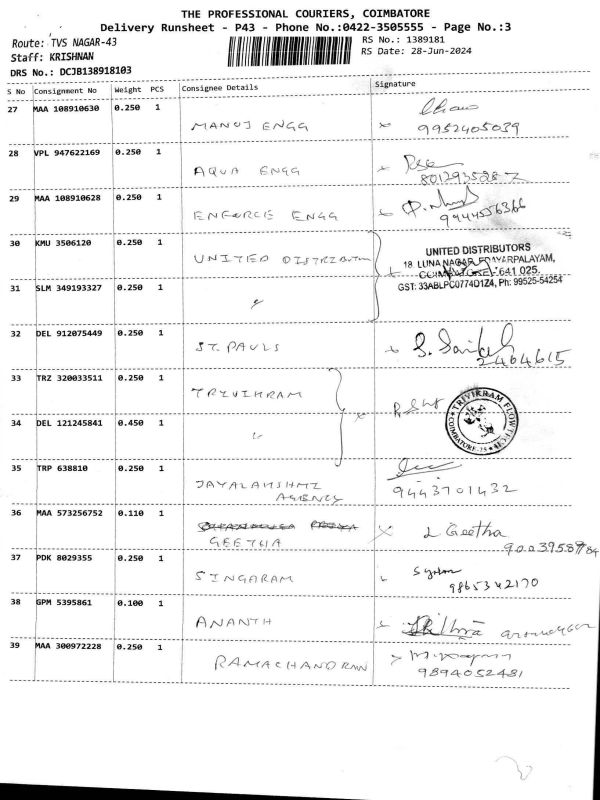 THE PROFESSIONAL COURIERS, COIMBATORE
Delivery Runsheet - P43 - Phone No.:0422-3505555 - Page No.:3
Route: TVS NAGAR-43
RS No.: 1389181
Staff: KRISHNAN
RS Date: 28-Jun-2024
DRS No.: DCJB138918103
S No Consignment No Weight PCS Consignee Details Signature
27 MAA 108910630 0.250 1
MANOJ ENGG 9952405039
28 VPL 947622169 0.250 1
AQUA ENGG
29 MAA 108910628 0.250 1
ENFORCE ENGG 9444556366
30 KMU 3506120 0.250 1
UNITED DISTRIBUTORS
UNITED DISTRIBUTION
18, LUNA NAGAR, EDAYARPALAYAM,
COIMBATORE - 641 025.
31 SLM 349193327 0.250 1
GST: 33ABLPC0774D1Z4, Ph: 99525-54254
32 DEL 912075449 0.250 1
ST. PAULS 2464615
33 TRZ 320033511 0.250 1
TRIVIKRAM
TRIVIKRAM FLOW
COIMBATORE-25
34 DEL 121245841 0.450 1
35 TRP 638810 0.250 1
JAYALAKSHMI
AGENCY 9443701432
36 MAA 573256752 0.110 1
GEETHA L Geetha
37 PDK 8029355 0.250 1
SINGARAM 9865342170
38 GPM 5395861 0.100 1
ANANTH
39 MAA 300972228 0.250 1
RAMACHANDRAN 9894052481